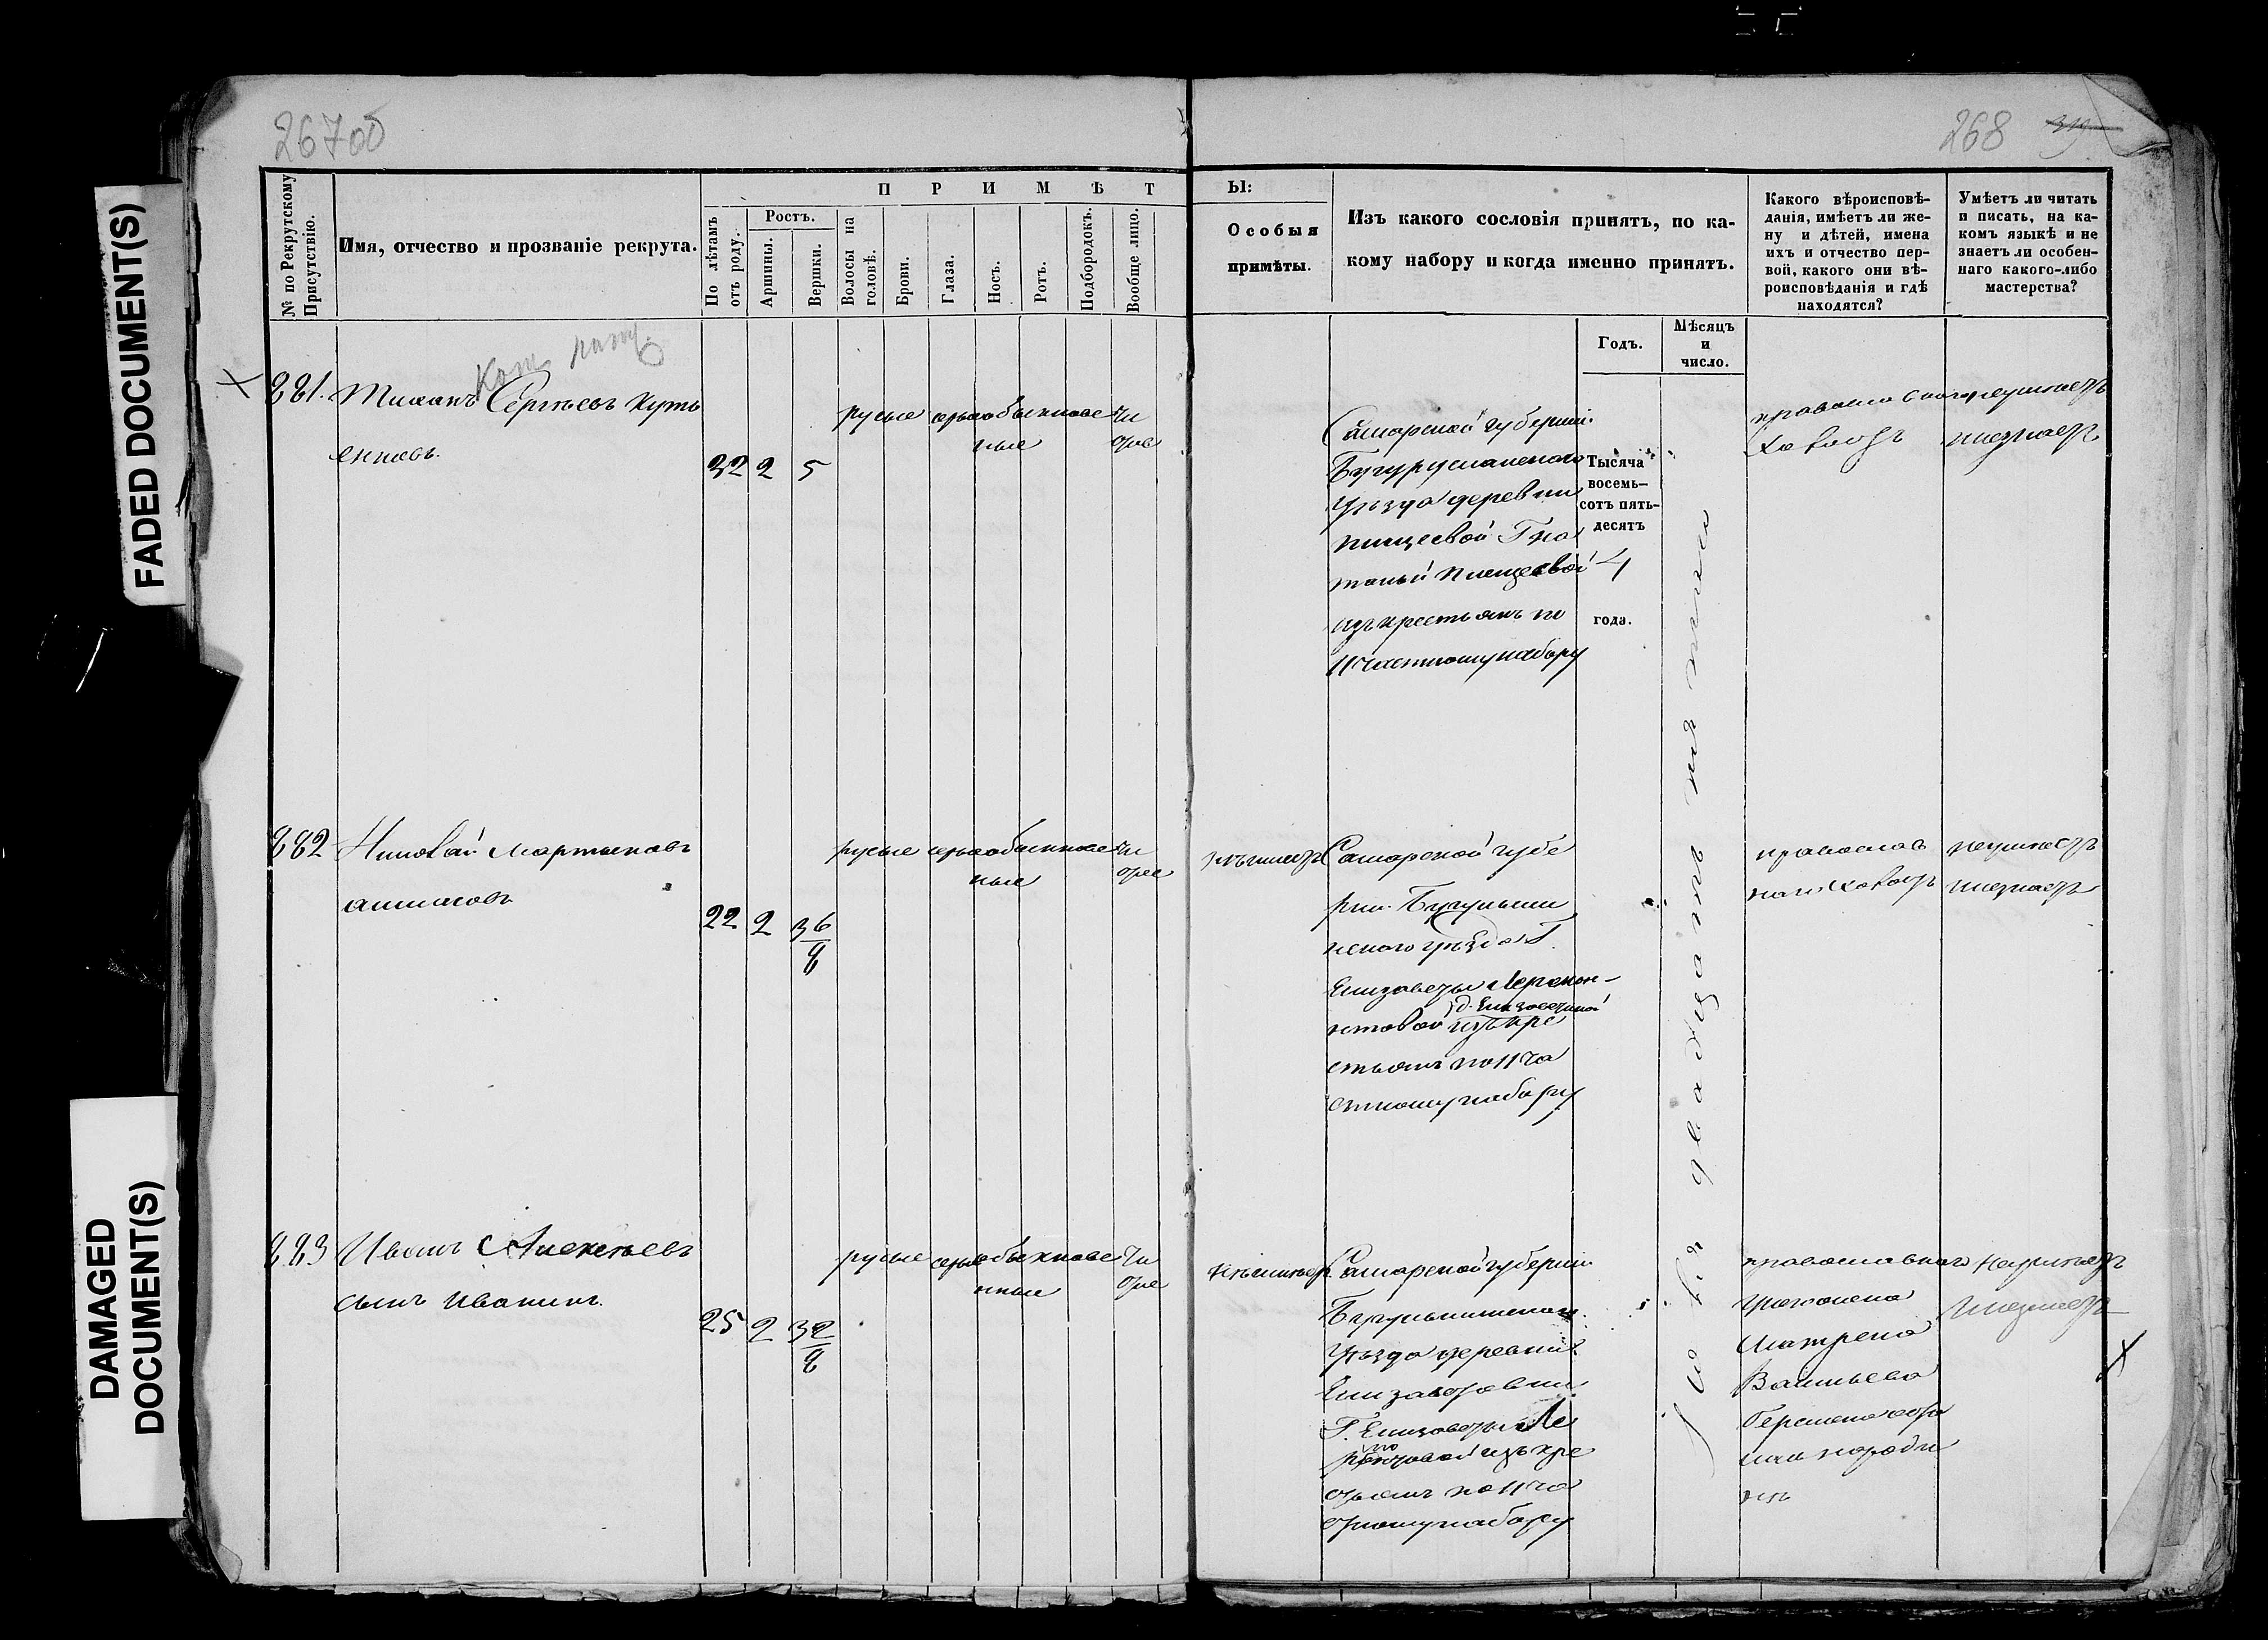 267об
268
FADED DOCUMENT(S)
DAMAGED
DOCUMENT(S)
№ по Рекрутскому
Присутствію.
Имя, отчество и прозваніе рекрута.
ПРИМѢТ
По лѣтамъ
отъ роду.
Ростъ.
Аршины.
Вершки.
Волосы на
головѣ.
Брови.
Глаза.
Носъ.
Ротъ.
Подбородокъ.
Вообще лицо.
Ы:
Особыя
примѣты.
Изъ какого сословія принятъ, по ка-
кому набору и когда именно принятъ.
Годъ.
Мѣсяцъ
и
число.
Какого вѣроисповѣ-
данія, имѣетъ ли же-
ну и дѣтей, имена
ихъ и отчество пер-
вой, какого они вѣ-
роисповѣданія и гдѣ
находятся?
Умѣетъ ли читать
и писать, на ка-
комъ языкѣ и не
знаетъ ли особен-
наго какого-либо
мастерства?
881. Сергѣевъ
32 2 5
русые серые обыкнове
ные
чи
стое
Самарской губерніи
Бугурусланского
Уѣзда деревни
изъ крестьянъ по
11 частному набору
Тысяча
восемь-
сотъ пять-
десятъ
4
года.
православнаго
холостъ
неумѣетъ
незнаетъ
882 Мартыновъ
22 2 3 6/8
русые серые обыкнове
ные
чи
стое
неимеетъ
Самарской губе
рніи Бугульми
нского уѣзда Г.
Елизаветы Лермон-
товой д. Елизаветиной
изъ кре
стьянъ по 11 ча
стному набору
православ
наго холостъ
неумѣетъ
незнаетъ
883 Иванъ Алексѣевъ
сынъ Иванинъ.
25 2 3 2/8
русые серые обыкнове
нные
чи
стое
неимѣетъ
Самарской губерніи
Бугульминского
Уѣзда деревни
Елизаветовки
Г. Елизаветы Ле
рмонтовой изъ кре
стьянъ по 11 ча
стному набору
православнаго
У него жена
Матрена
Васильева
неумѣетъ
незнаетъ
двадцать